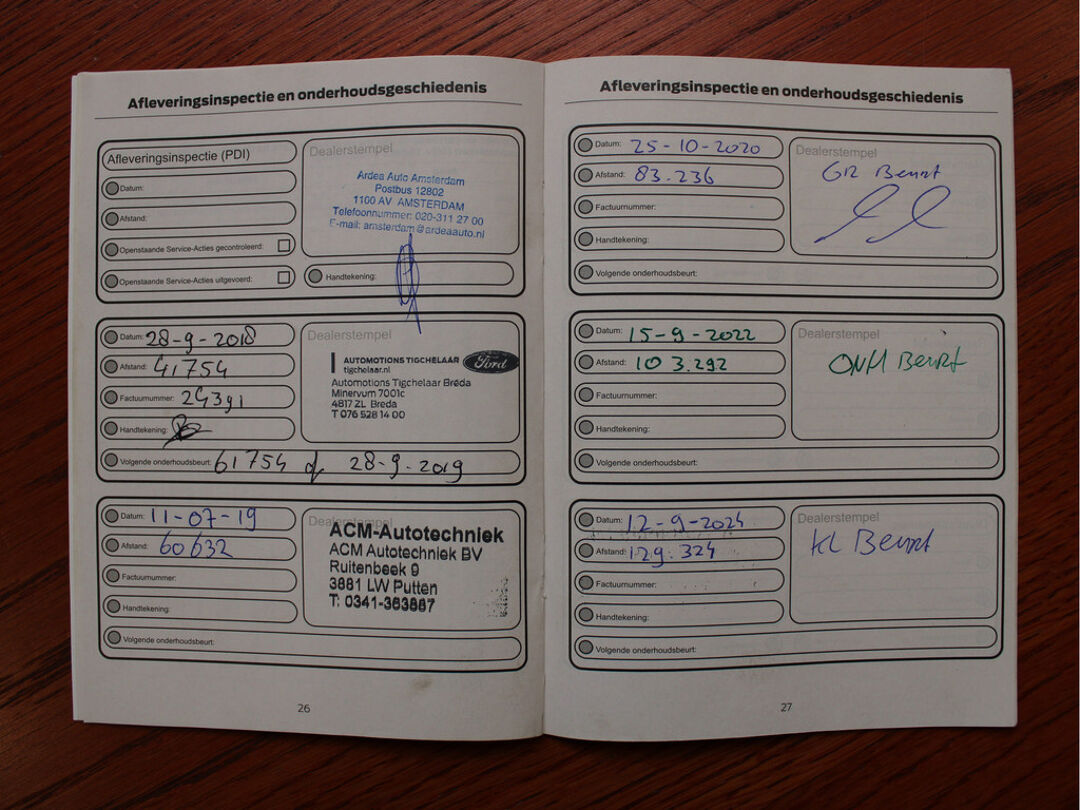 Afleveringsinspectie en onderhoudsgeschiedenis
Afleveringsinspectie (PDI)
Datum:
Afstand:
Openstaande Service-Acties gecontroleerd:
Openstaande Service-Acties uitgevoerd:
Dealerstempel
Ardea Auto Amsterdam
Postbus 12802
1100 AV AMSTERDAM
Telefoonnummer: 020-311 27 00
E-mail: amsterdam@ardeaauto.nl
Handtekening:
Datum: 28-9-2018
Afstand: 41754
Factuurnummer: 24391
Handtekening:
Volgende onderhoudsbeurt: 61754 of 28-9-2019
Dealerstempel
AUTOMOTIONS TIGCHELAAR
tigchelaar.nl
Ford
Automotions Tigchelaar Breda
Minervum 7001c
4817 ZL Breda
T 076 528 14 00
Datum: 11-07-19
Afstand: 60632
Factuurnummer:
Handtekening:
Volgende onderhoudsbeurt:
Dealerstempel
ACM-Autotechniek
ACM Autotechniek BV
Ruitenbeek 9
3881 LW Putten
T: 0341-363887
26
Afleveringsinspectie en onderhoudsgeschiedenis
Datum: 25-10-2020
Afstand: 83.236
Factuurnummer:
Handtekening:
Volgende onderhoudsbeurt:
Dealerstempel
GR Beurt
Datum: 15-9-2022
Afstand: 103.292
Factuurnummer:
Handtekening:
Volgende onderhoudsbeurt:
Dealerstempel
ONH Beurt
Datum: 12-9-2024
Afstand: 129.324
Factuurnummer:
Handtekening:
Volgende onderhoudsbeurt:
Dealerstempel
KL Beurt
27